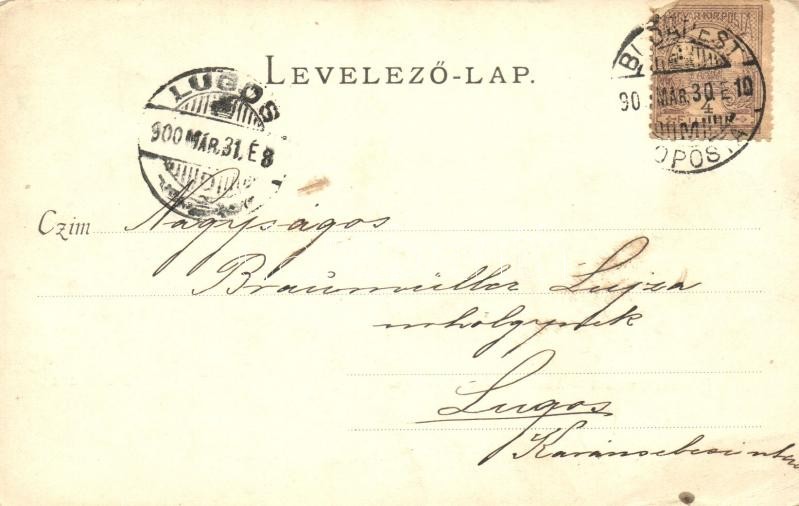 LEVELEZŐ-LAP.
LUGOS
900 MÁR. 31. É 8
BUDAPEST
90 MÁR. 30 É 10
MAGYAR KIR. POSTA
4
Czim Nagyságos
Braunmüller Lujza
urhölgynek
Lugos
Karánsebesi utcza